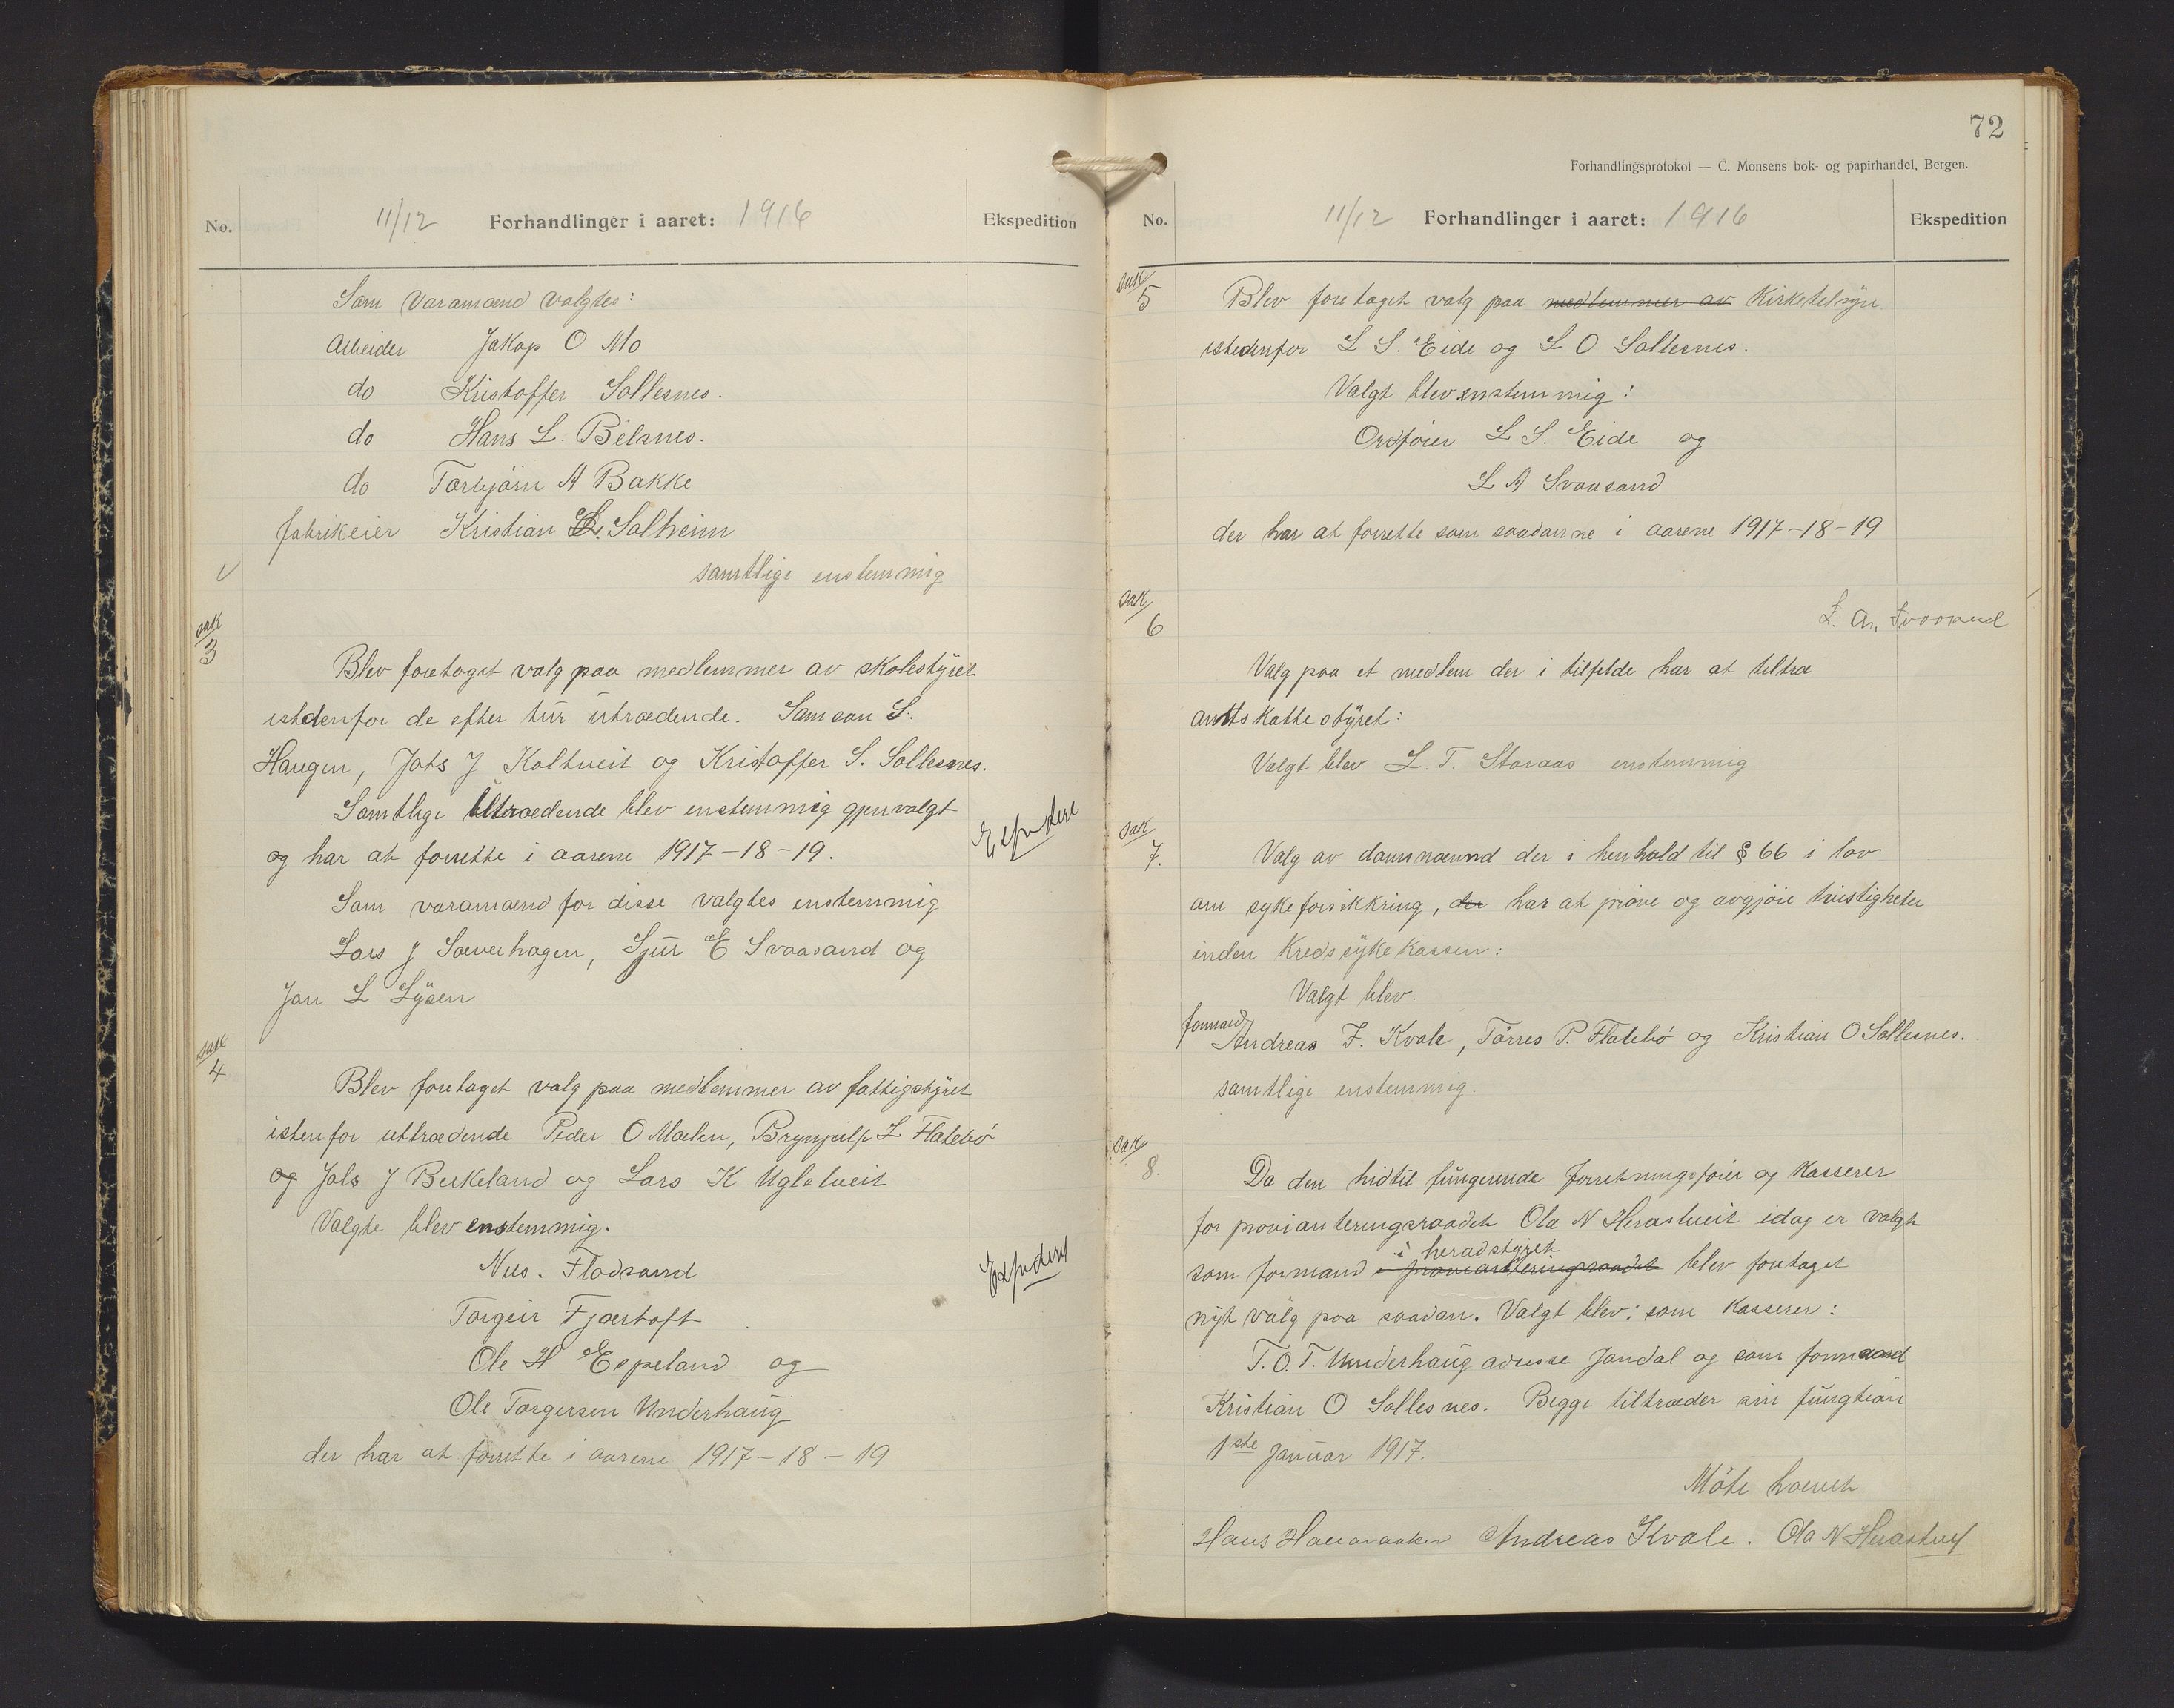 No.
11/12 Forhandlinger i aaret: 1916
Ekspedition
Som Varamænd valgtes:
Arbeider Jakop O Mo
do Kristoffer Sollesnes.
do Hans L. Belsnes.
do Torbjørn A Bakke
fabrikeier Kristian L. Solheim
samtlige enstemmig
sak
3
Blev foretaget valg paa medlemmer av skolestyret
istedenfor de efter tur utrædende. Samson S.
Haugen, Johs J Koltveit og Kristoffer S. Sollesnes.
Samtlige uttrædende blev enstemmig gjenvalgt
og har at forrette i aarene 1917-18-19.
Som varamænd for disse valgtes enstemmig
Lars J Sæverhagen, Sjur E Svaasand og
Jon L Lysen
sak
4
Blev foretaget valg paa medlemmer av fattigstyret
istenfor uttrædende Peder O Mælen, Brynjulf L Flatebø
og Johs J Berkeland og Lars K Ugletveit
Valgte blev enstemmig.
Nils. Flodsand
Torgeir Fjærtoft
Ole H Espeland og
Ole Torgersen Underhaug
der har at forrette i aarene 1917-18-19
72
Forhandlingsprotokol — C. Monsens bok- og papirhandel, Bergen.
No.
11/12 Forhandlinger i aaret: 1916
Ekspedition
sak
5
Blev foretaget valg paa medlemmer av Kirketilsyn
istedenfor L S. Eide og L O Sollesnes.
Valgt blev enstemmig:
Ordfører L S. Eide og
L A Svaasand
der har at forrette som saadanne i aarene 1917-18-19
sak
6
L. A. Svaasand
Valg paa et medlem der i tilfelde har at tiltræ
amtskattestyret:
Valgt blev L. T. Storaas enstemmig
sak
7.
Valg av domsnævnd der i henhold til § 66 i lov
om sykeforsikkring, der har at prøve og avgjøre tvistigheter
inden Kredssykekassen:
Valgt blev.
formand
Andreas J. Kvale, Tørres P. Flatebø og Kristian O Sollesnes.
samtlige enstemmig.
sak
8.
Da den hidtil fungerende forretningsfører og Kasserer
for provianteringsraadet Ola N Herastveit idag er valgt
i heradstyret
som formand i provianteringsraadet blev foretaget
nyt valg paa saadan. Valgt blev: som Kasserer:
T. O. T. Underhaug adresse Jondal og som formand
Kristian O Sollesnes. Begge tiltræder sin fungtion
1ste Januar 1917.
Møte hævet
Andreas Kvale. Ola N Herastveit